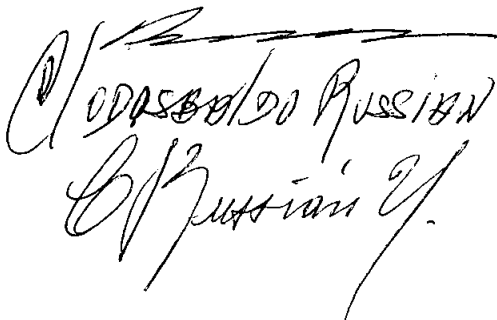 Clodosbaldo Russian
C Russián U.